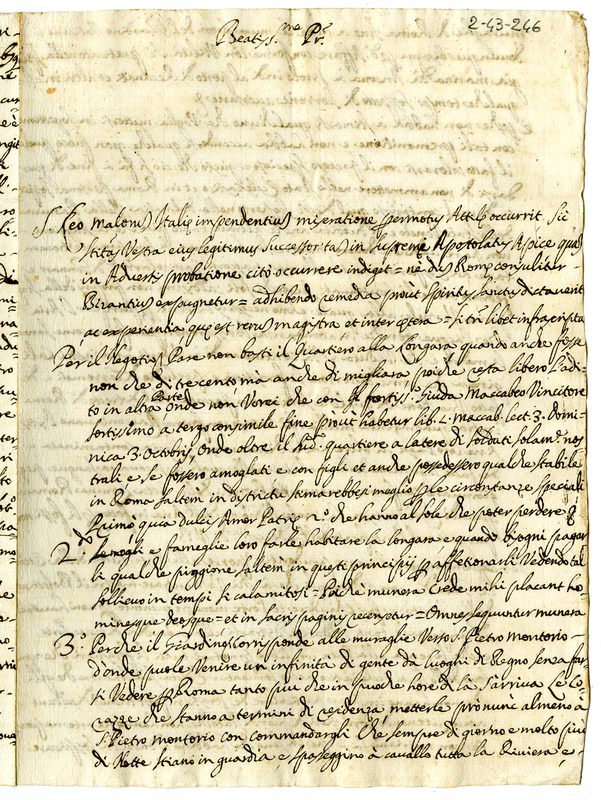 2-43-246
Beatiss.me Pr.
S. Leo malorus Italię impendentius miseratione permotus Attilę occurrit. Sic
stitas Vestra eius legitimus successor tas in supremę Apostolatus Apice quas
in Adversis probatione citò occurrere indiget = ne dus Romę consulitur
Bizantius expugnetur = adhibendo remedia proùt Spiritus Sanctus dictaverit
ac experientia quę est rerus magistra et inter cętera = si tñ libet infrascripta
Per il Negotios Pare non basti il Quartiero alla Longara quando anche fosse
non che di trecento mà anche di migliara poiche resta libero l'adi-
to in altra Parte Onde non Vorei che con q.l fortiss.o Giuda Maccabeo Vincitore
fortissimo a tergo consimile fine proùt habetur lib. 2. maccab. lect. 3. Domi-
nica 3. Octobris, Onde oltre il sud.o quartiere a latere di soldati solam.te nos
trali e se fossero amogliati e con figli et anche possedessero qualche stabile
in Roma saltem in districtu stimarebbesi meglio p le circontanze speciali
Primo quia dulcis Amor Patrię 2.o che hanno al sole che poter perdere
2.do Le mogli e fameglie loro farle habitare la longara e quando bisogni pagar
li qualche piggione saltem in questi principij p affetionarli Vedendo tal
sollievo in tempi si calamitosi = Poiche munera Crede mihi placant ho
minesque deosque = et in sacris paginis recensetur = Omnes sequuntur munera
3.o Perche il Giardino Corrisponde alle muraglie Verso S. Pietro montorio -
d'onde puole Venire un infinità di gente dà luoghi di Regno senza far
si Vedere p Roma tanto più che in puoche hore di là s'arriva Le Co-
razze che stanno a termini di residenza metterle prò nunc almeno à
S. Pietro montorio con commandargli Che sempre di giorno e molto più
di Notte stiano in guardia e spasseggino à cavallo tutta la Riviera e -